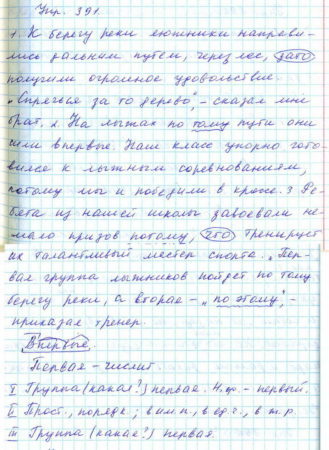 Упр. 391.
1. К берегу реки лыжники направи-
лись дальним путём, через лес, зато
получили огромное удовольствие.
„Спрячься за то дерево," - сказал мне
брат. 2. На лыжах по тому пути они
шли впервые. Наш класс упорно гото-
вился к лыжным соревнованиям,
потому мы и победили в кроссе. 3 Ре-
бята из нашей школы завоевали не-
мало призов потому, что тренирует
их талантливый мастер спорта. „Пер-
вая группа лыжников пойдет по тому
берегу реки, а вторая - „по этому", -
приказал тренер.
Впервые.
Первая - числит.
I Группа (какая?) первая. Н.ф. - первый.
II Прост., порядк.; в им.п., в ед.ч., в ж.р.
III Группа (какая?) первая.